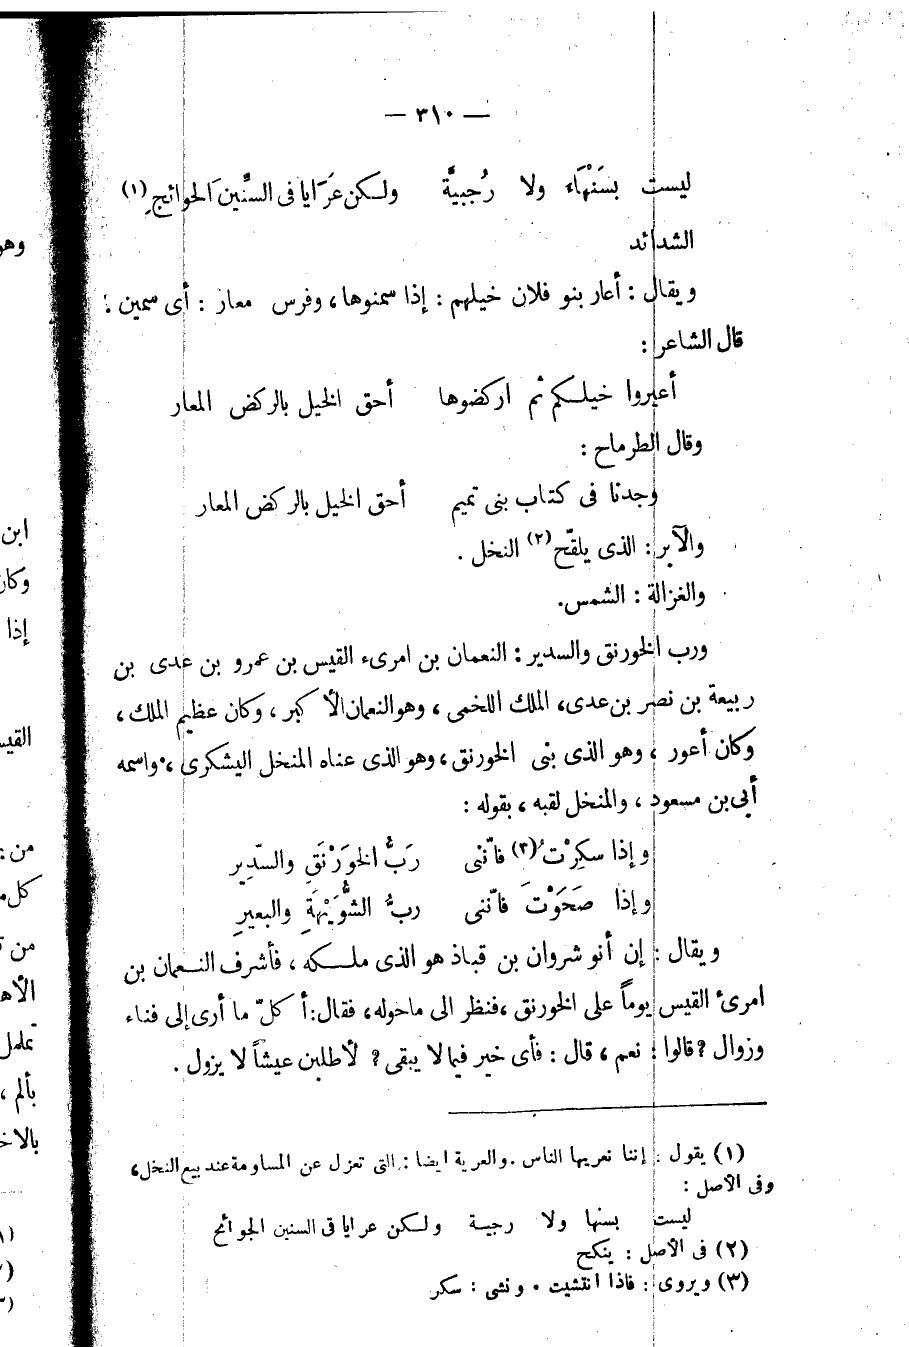 — ٣١٠ —
ليست بسَنْهَاء ولا رُجبيَّة ولكن عَرَايا فى السنَّين الجوائجِ (١)
الشدائد
ويقال : أعار بنو فلان خيلهم : إذا سمنوها ، وفرس معار : أى سمين :
قال الشاعر :
أعيروا خيلكم ثم اركضوها أحق الخيل بالركض المعار
وقال الطرماح :
وجدنا فى كتاب بنى تميم أحق الخيل بالركض المعار
والآبر : الذى يلقّح (٢) النخل .
والغزالة : الشمس .
ورب الخورنق والسدير : النعمان بن امرىء القيس بن عمرو بن عدى بن
ربيعة بن نصر بن عدى، الملك اللخمى ، وهو النعمان الأكبر ، وكان عظيم الملك ،
وكان أعور ، وهو الذى بنى الخورنق ، وهو الذى عناه المنخل اليشكرى ، واسمه
أبى بن مسعود ، والمنخل لقبه ، بقوله :
وإذا سكِرْتُ (٣) فانّنى رَبُّ الخوَرْنَقِ والسّدِير
وإذا صَحَوْتَ فانّنى ربُّ الشُّوَيْهَةِ والبعيرِ
ويقال : إن أنو شروان بن قباذ هو الذى ملكه ، فأشرف النعمان بن
امرئ القيس يوماً على الخورنق ، فنظر الى ماحوله، فقال: أكلّ ما أرى إلى فناء
وزوال ؟ قالوا : نعم ، قال : فأى خير فيما لا يبقى ؟ لأطلبن عيشاً لا يزول .
(١) يقول : إننا نعريها الناس . والعرية ايضا : التى تعزل عن المساومة عند بيع النخل،
وفى الأصل :
ليست بسنها ولا رجبية ولكن عرايا فى السنين الجوائح
(٢) فى الأصل : ينكح
(٣) ويروى : فاذا انتشيت . ونشى : سكر
وهو
ابن
وكان
إذا
القيس
من
كل
من
الأه
تململ
بألم ،
بالاخ